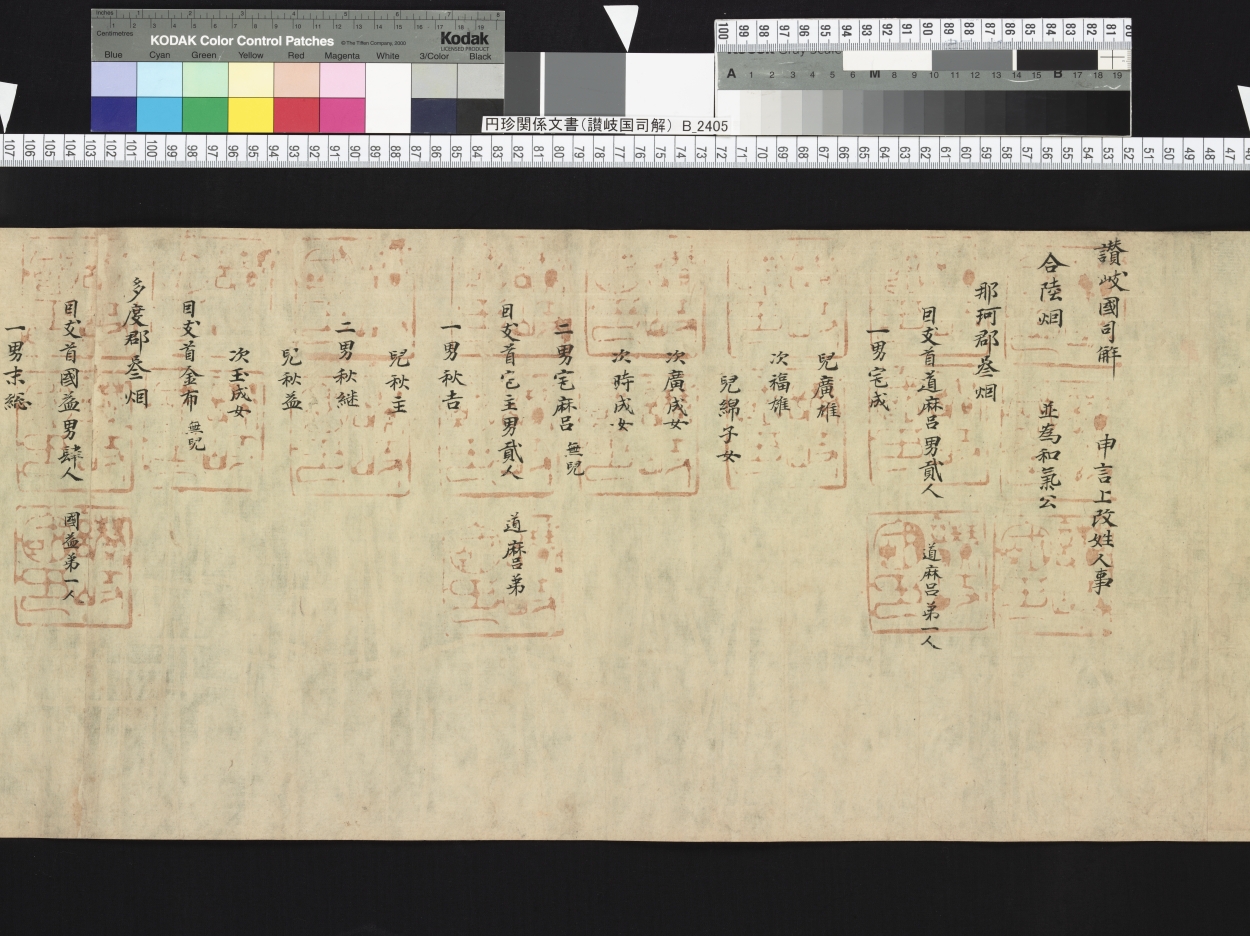 KODAK Color Control Patches
© The Tiffen Company, 2000
Kodak
LICENSED PRODUCT
Inches
Centimetres
Blue Cyan Green Yellow Red Magenta White 3/Color Black
円珍関係文書(讃岐国司解) B_2405
讃岐國司解 申言上改姓人事
合陸烟 並為和氣公
那珂郡叄烟
因支首道麻呂男貳人 道麻呂弟一人
一男宅成
兒廣雄
次福雄
兒綿子女
次廣成女
次時成女
二男宅麻呂 無兒
因支首宅主男貳人 道麻呂弟
一男秋吉
兒秋主
二男秋継
兒秋益
次玉成女
因支首金布 無兒
多度郡叄烟
因支首國益男肆人 國益弟一人
一男末総